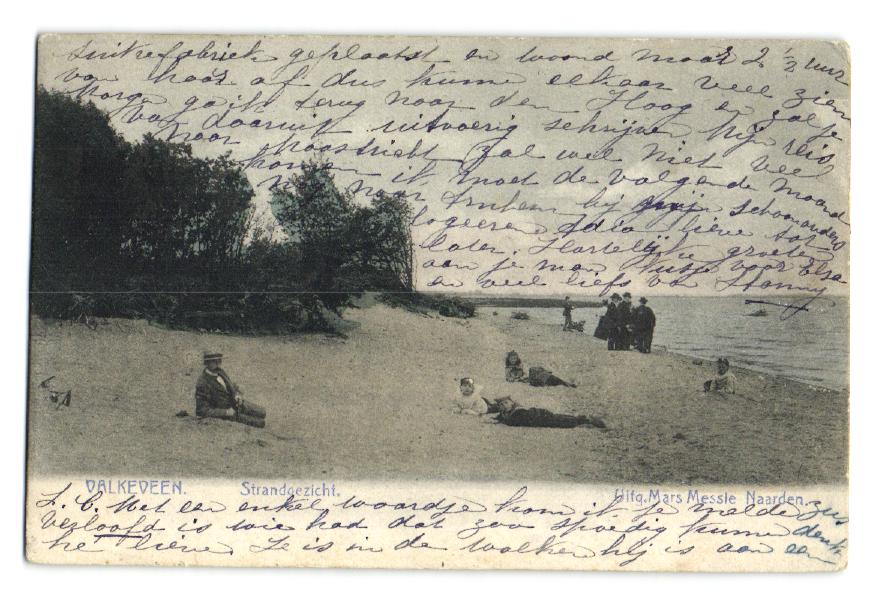 suikerfabriek geplaatst en woond maar 2 ½ uur
van haar af dus kunne elkaar veel zien
Morge ga ik terug naar den Haag en zal je
van daaruit uitvoerig schrijve. Mijn reis
naar Maastricht zal wel niet veel
komen ik moet de volgende maand
naar Arnhem bij mijn schoonouders
logeeren Adio lieve tot
later. Hartelijke groeten
aan je man kusje voor Elsa
en veel liefs van Hanny
VALKEVEEN. Strandgezicht. Uitg. Mars Messie Naarden.
L. C. Met een enkel woordje kom ik je melde zus
verloofd is wie had dat zoo spoedig kunne denk
hé lieve Ze is in de wolken hij is aan een